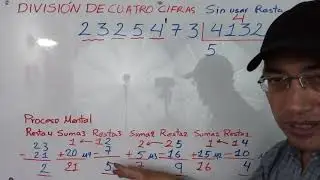 DIVISIÓN DE CUATRO CIFRAS Sin usar Resta
4
23254'73 4132
5
Proceso Mental
Resta4 Suma3 Resta3 Suma2 Resta2 Suma1 Resta1
23 1 ← 12 2 ← 25 1 ← 14
-21 +20 -7 +5 -16 +15 -10
2 21 5 7 9 16 4